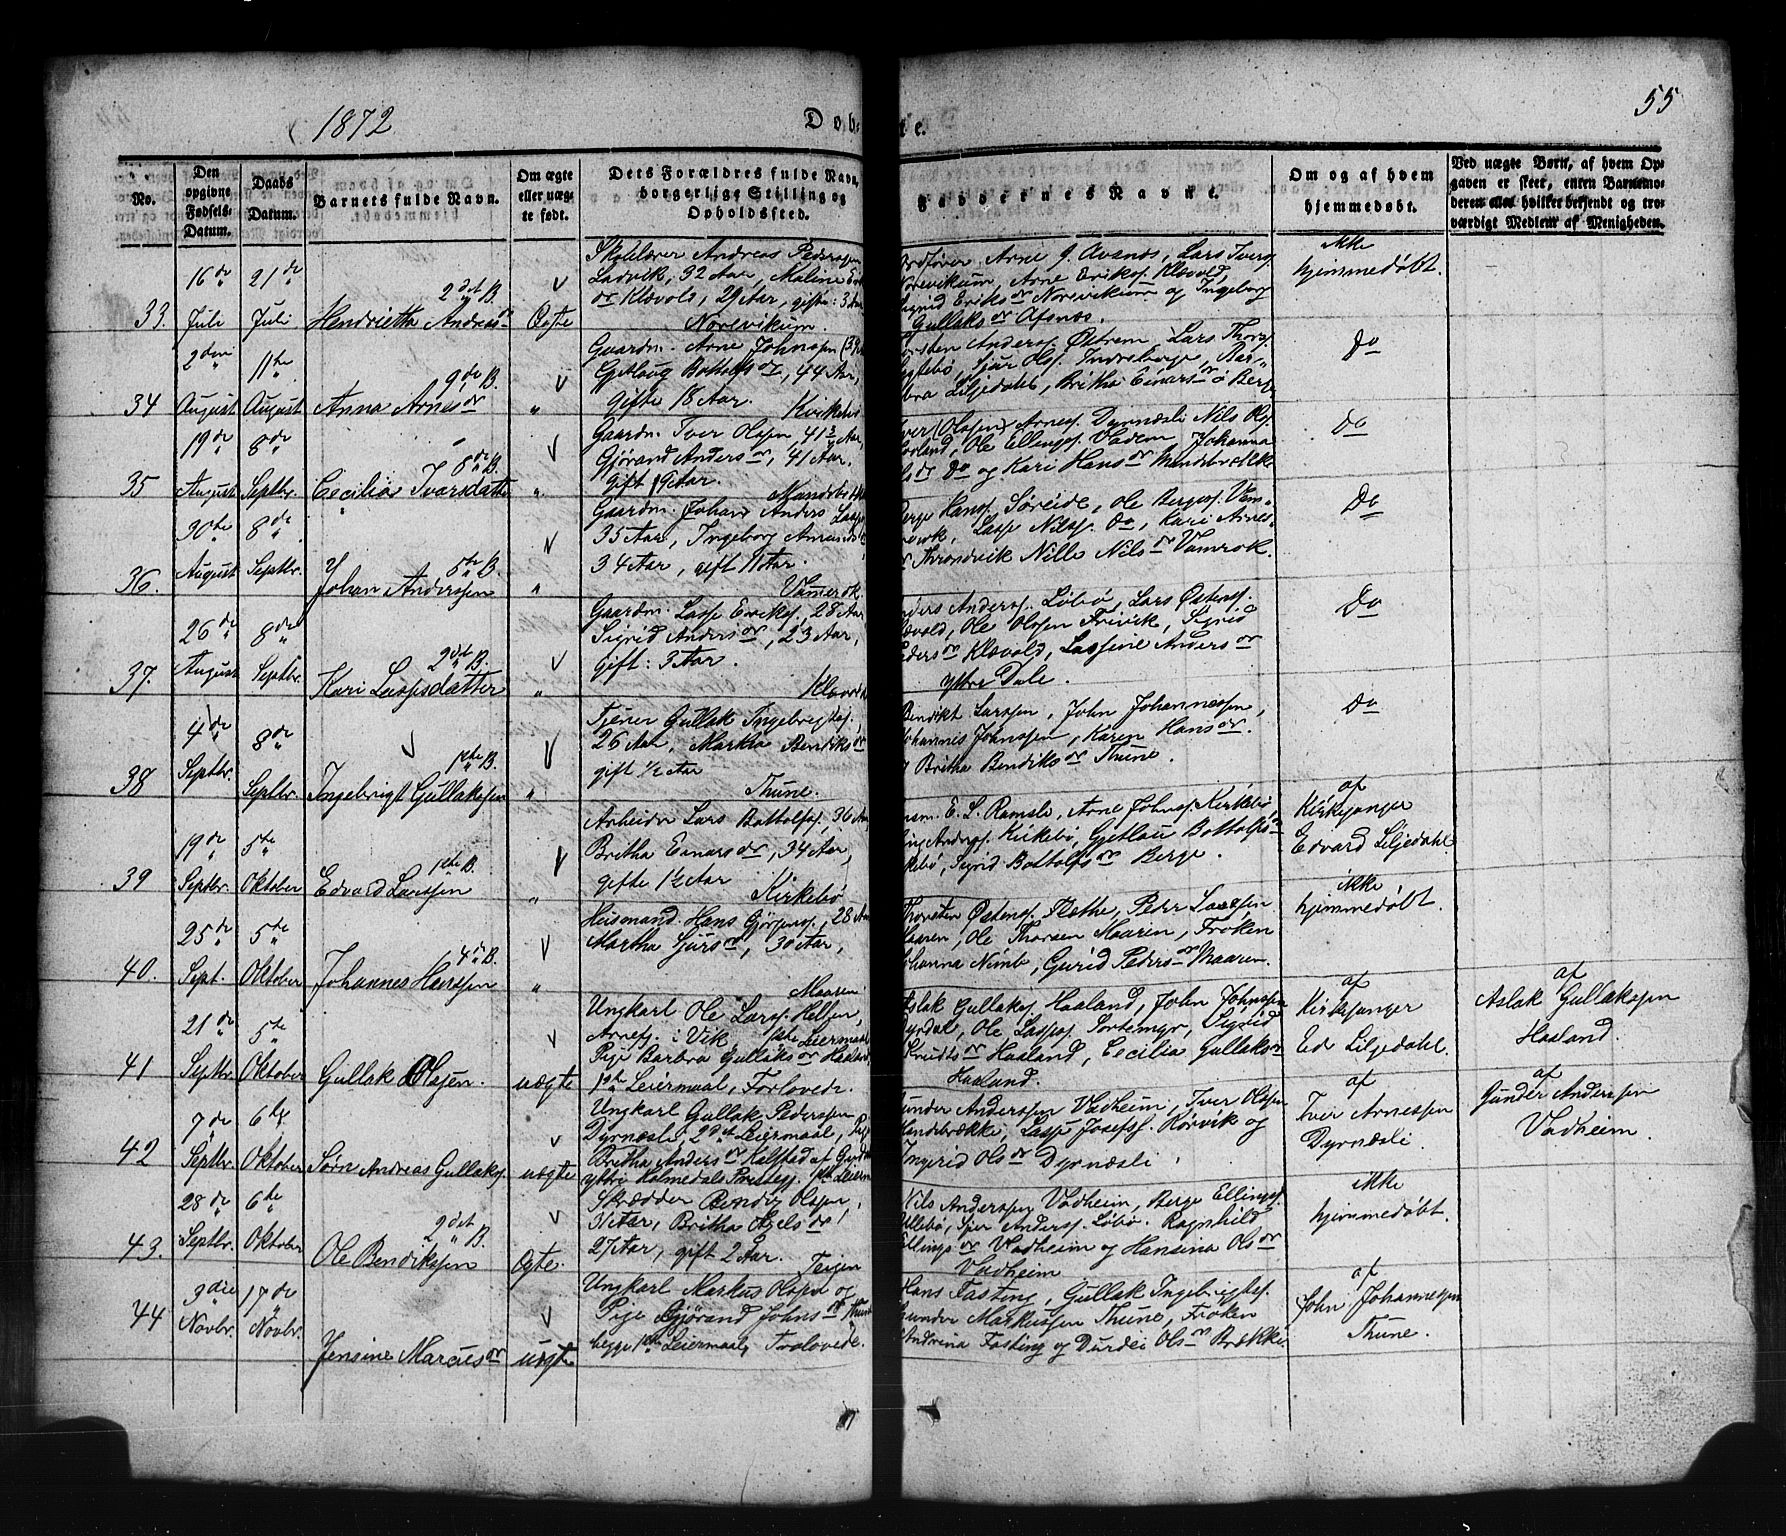 1872
Døb-
te.
55
No.
Den opgivne Fødsels-Datum.
Daabs Datum.
Barnets fulde Navn.
Om ægte eller uægte født.
Dets Forældres fulde Navn, borgerlige Stilling og Opholdssted.
Faddernes Navne.
Om og af hvem hjemmedøbt.
Ved uægte Børn, af hvem Opgaven er skeet, enten Barnemoderen eller hvilket bekjendt og troværdigt Medlem af Menigheden.
33.
16de Juli
21de Juli
2det B.
Henrietta Andreasdr
Ægte
Skolelærer Andreas Pederssen
Ladvik, 32 Aar, Maline
dr Klævold, 29 Aar, gifte: 3
Norevikum.
Arne J. Avsnæs, Lars Ivers.
Norevikum, Arne Eriks. Klævold,
Sigrid Eriksdr Norevikum og Ingeborg
Gullaksdr Afsnæs.
ikke
hjemmedøbt.
34
2den August
11te August
9de B.
Anna Arnesdr
"
Gaardm. Arne Johnssen
Gjetlaug Bottolfsdr, 44 Aar,
gifte 18 Aar.
Kirkebø
Anderss. Østrem, Lars Thors.
Sjur Ols. Indreberge, Bar-
bra Liljedahl, Britha Einarsdr Berge
Do
35
19de August
8de Septbr.
8de B.
Cecilia Ivarsdatter
"
Gaardm. Iver Olssen, 41½ Aar,
Gjørand Andersdr, 41 Aar.
gift 19 Aar.
Iver (Olssen) Arness. Dyrnæsli Nils Ols.
Ole Ellings. Vadem, Johanna
Do og Kari Hansdr Mandsbrække
Do
36.
30te August
8de Septbr.
5te B.
Johan Anderssen
"
Gaardm. Johan Anders
35 Aar, Ingeborg
34 Aar, gift 11 Aar.
Vamerøk
Berge Hans. Søreide, Ole Berges. Vam-
Lasse Nilss. Do, Kari Arnes-
Throndvik Nille Nilsdr Vamrøk.
Do
37.
26de August
8de Septbr.
2det B.
Kari Lassesdatter
"
Gaardm. Lasse Eriks., 28 Aar
Sigrid Andersdr, 23 Aar,
gift: 3 Aar.
Klævold
Anders Anders. Løbø, Lars Østens.
Klævold, Ole Olssen Frivik, Sigrid
Klævold, Lassine Andersdr
Yttre Dale.
Do
38
4de Septbr.
8de Septbr.
1ste B.
Ingebrigt Gullakssen
"
Tjener Gullak Ingebrigts.
26 Aar, Martha Bendiksdr
gift ½ Aar
Thune.
Bendikt Larssen, John Johannessen,
Johannes Johnssen, Karen Hansdr.
Britha Bendiksdr Thune.
Do
39
19de Septbr.
5te Oktober
1ste B.
Edvard Larssen
"
Arbeider Lars Bottolfs., 36
Britha Einarsdr, 34 Aar,
gifte 1½ Aar
Kirkebø
E. L. Ramsli, Arne Johns. Kirkebø,
Anders. Kirkebø, Gjetlau Bottolfsdr
Sigrid Bottolfsdr Berge.
af
Kirkesanger
Edvard Liljedahl.
40.
25de Sept.
5te Oktober
4de B.
Johannes Hanssen
"
Husmand. Hans Gjørgens., 28
Martha Sjursdr, 30 Aar,
Maaren
Thorsten Østens. Flæthe, Peder Lassesen
Maaren, Ole Thorsen Maaren, Frøken
Johanna Nimb, Gurid Pedersdr Maaren.
ikke
hjemmedøbt.
41
21de Septbr.
5te Oktober
Gullak Olssen.
uægte
Ungkarl Ole Larss.
i Vik, 1ste Leiermaal
Pige Barbra Gullaksdr Haaland,
1ste Leiermaal, Forlovede.
Aslak Gullaks. Haaland, John Johnssen
Dyrdal, Ole Lasses. Sortemyr, Sigrid
Knudtsdr Haaland, Cecilia Gullaksdr
Haaland.
af
Kirkesanger
Ed Liljedahl.
af
Aslak Gullakssen
Haaland.
42
7de Septbr.
6te Oktober
Sørn Andreas Gullaks.
uægte
Ungkarl Gullak Pederssen
Dyrnæsli, 2det Leiermaal, Pige
Britha Andersdr Halstad af
yttre Holmedals Prestegj. 1ste Leierm
Gunder Anderssen Vadheim, Iver Olssen
Mandsbrække, Lasse Josefs. Rørvik og
Ingerid Olsdr Dyrnæsli.
af
Iver Arnessen
Dyrnæsli
af
Gunder Anderssen
Vadheim.
43.
28de Septbr.
6te Oktober
2det B.
Ole Bendikssen
Ægte.
Skrædder Bendix Olssen,
31 Aar, Britha Axelsdr,
27 Aar, gift 2 Aar.
Teigen
Nils Anderssen Vadheim, Berge Ellings.
Anders. Løbø. Ragnhild
Ellingsdr Vadheim og Hansina Olsdr
Vadheim
ikke
hjemmedøbt.
44
3die Novbr.
17de Novbr.
Jensine Marcusdr
uægte
Ungkarl Markus Olssen og
Pige Gjørand Johnsdr Thune
begge 1ste Leiermaal, Trolovede.
Hans Fasting, Gullak Ingebrigts.
Gunder Markussen Thune, Frøken
Andrina Fasting og Durdei Olsdr Brække
af
John Johannessen
Thune.